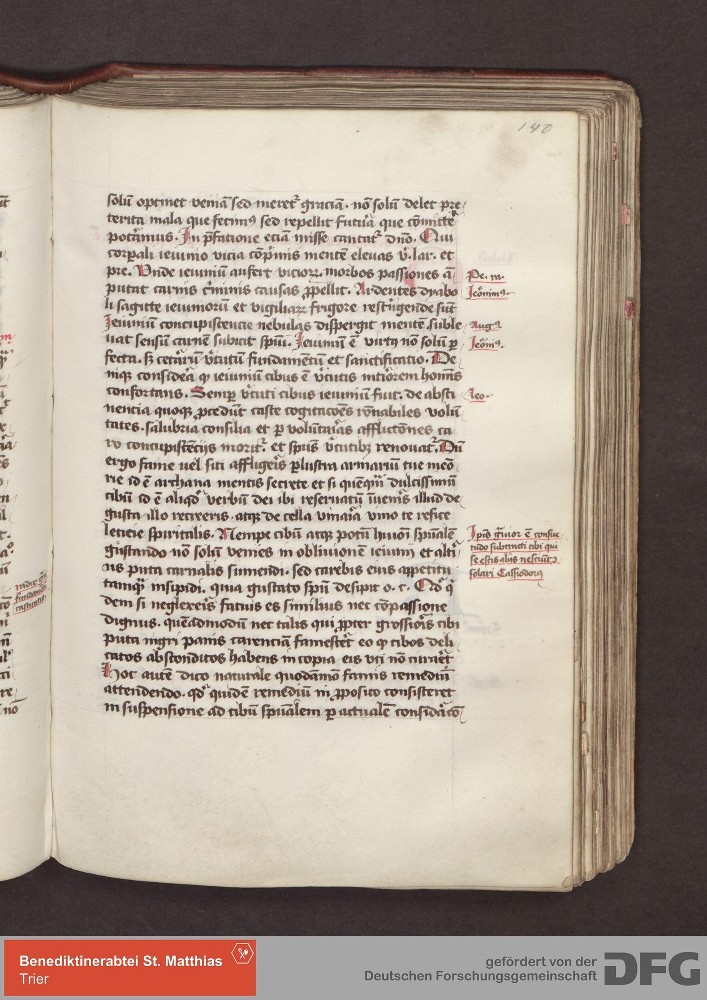 140
solū optinet veniā sed meret᷑ graciā. nō solū delet pre
terita mala que fecimꝰ sed repellit futura que cōmitte
potamus. In p̄fatione eciā misse cantat᷑ dn̄o. Qui
corꝑali ieiunio vicia cōprimis mentē eleuas v̄. lar. et
pre. Vnde ieiuniū aufert viciorꝝ morbos passiones ā
putat carnis criminis causas ꝓpellit. Ardentes dyabo
li sagitte ieiuniorū et vigiliarꝝ frigore restinguende sūt
Ieiuniū concupiscencie nebulas dispergit mentē suble
uat sensū carnē subicit spūi. Ieiuniū ē virtꝰ nō solū ꝑ
fecta. sꝫ ceterarū v̄tutū fundamentū et sanctificatio. De
niqꝫ considera ꝙ ieiuniū cibus ē v̄tutis interiorem hominis
confortans. Semꝑ v̄tuti cibus ieiuniū fuit. de absti
nencia quoqꝫ ꝓcedūt caste cogitacōes rōnabiles volū
tates. salubria consilia et ꝑ voluntarias afflictōnes ca
ro concupiscēcijs morit᷑. et spūs v̄tutibꝫ renouat᷑. Dū
ergo fame uel siti affligeris ꝑlustra armariū tue meō
rie id ē archana mentis secrete et si quēqm̄ dulcissimū
cibū id ē aliqd̄ verbū dei ibi reseruatū inueneris illud de
gusta illo recreeris. atqꝫ de cella vinaria vino te refice
leticie spiritalis. Nempe cibū atqꝫ potū huiōi spūalē
gustando nō solū venies in obliuionē ieiunij et alti
us puta carnalis sumendi. sed carebis eius appetitu
tamqꝫ insipidi. quia gustato spū desipit o. c. Qd̄ q̄
dem si neglexeris fatuus es similius nec cōpassione
dignus. queadmodū nec talis qui ꝓpter grossioris cibi
puta nigri panis carenciā famesceret eo ꝙ cibos deli
catos absconditos habens in copia eis vti nō curaret
Hoc autē dico naturale quodāmō famis remediū
attendendo. qd̄ quidē remediū in ꝓposito consisteret
in suspensione ad cibū spūalem ꝑ actualē considacō
Pe. ra.
Ieronimꝰ.
Augꝰ
Ieōnꝰ.
leo.
Ipīs grauior ē consue
tudo subtracti cibi qui
se estis aliis nesciūt
solari Cassiodorꝰ
Benediktinerabtei St. Matthias
Trier
gefördert von der
Deutschen Forschungsgemeinschaft
DFG